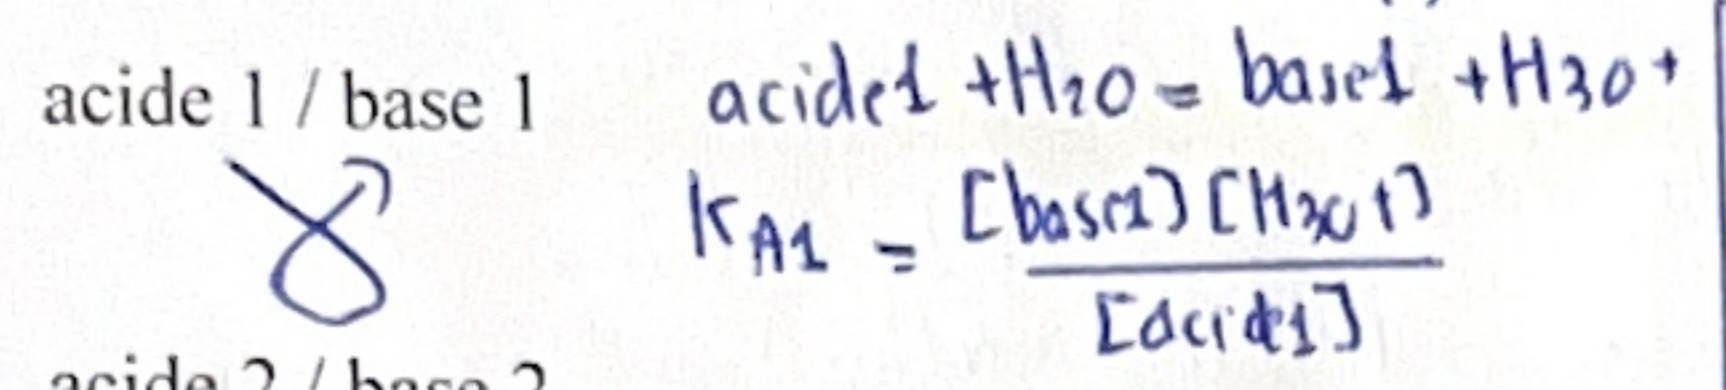 acide 1 / base 1
acide1 + H2O = base1 + H3O+
KA1 = [base1] [H3O+]
[acide1]
acide 2 / base 2